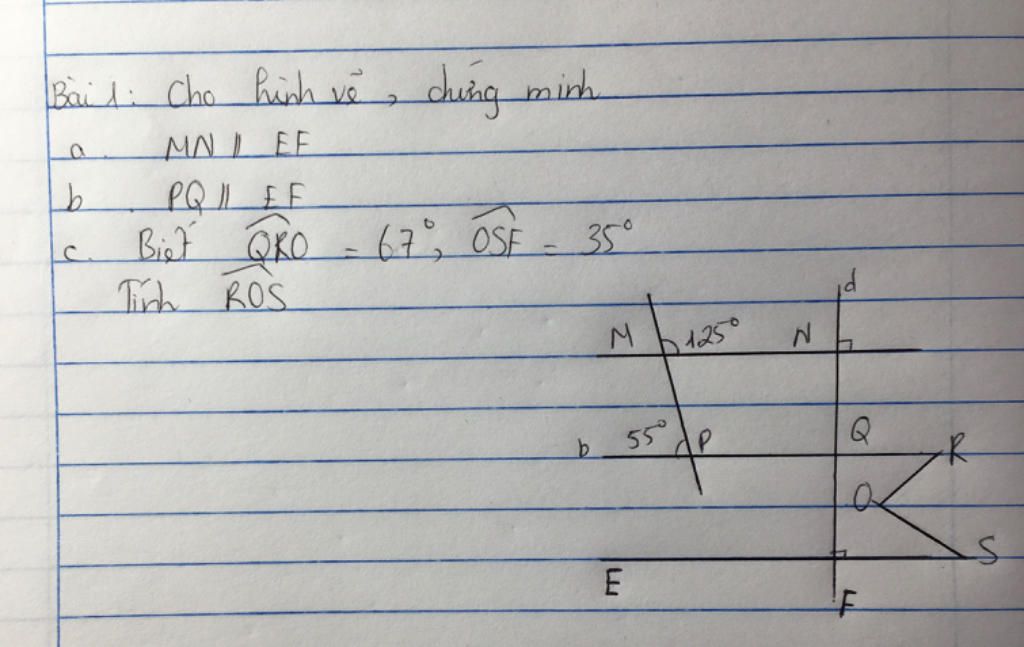 Bài 1: Cho hình vẽ, chứng minh
a. MN // EF
b. PQ // EF
c. Biết QRO = 67°, OSF = 35°
Tính ROS
d
M 125° N
b 55° P Q R
O
E F S